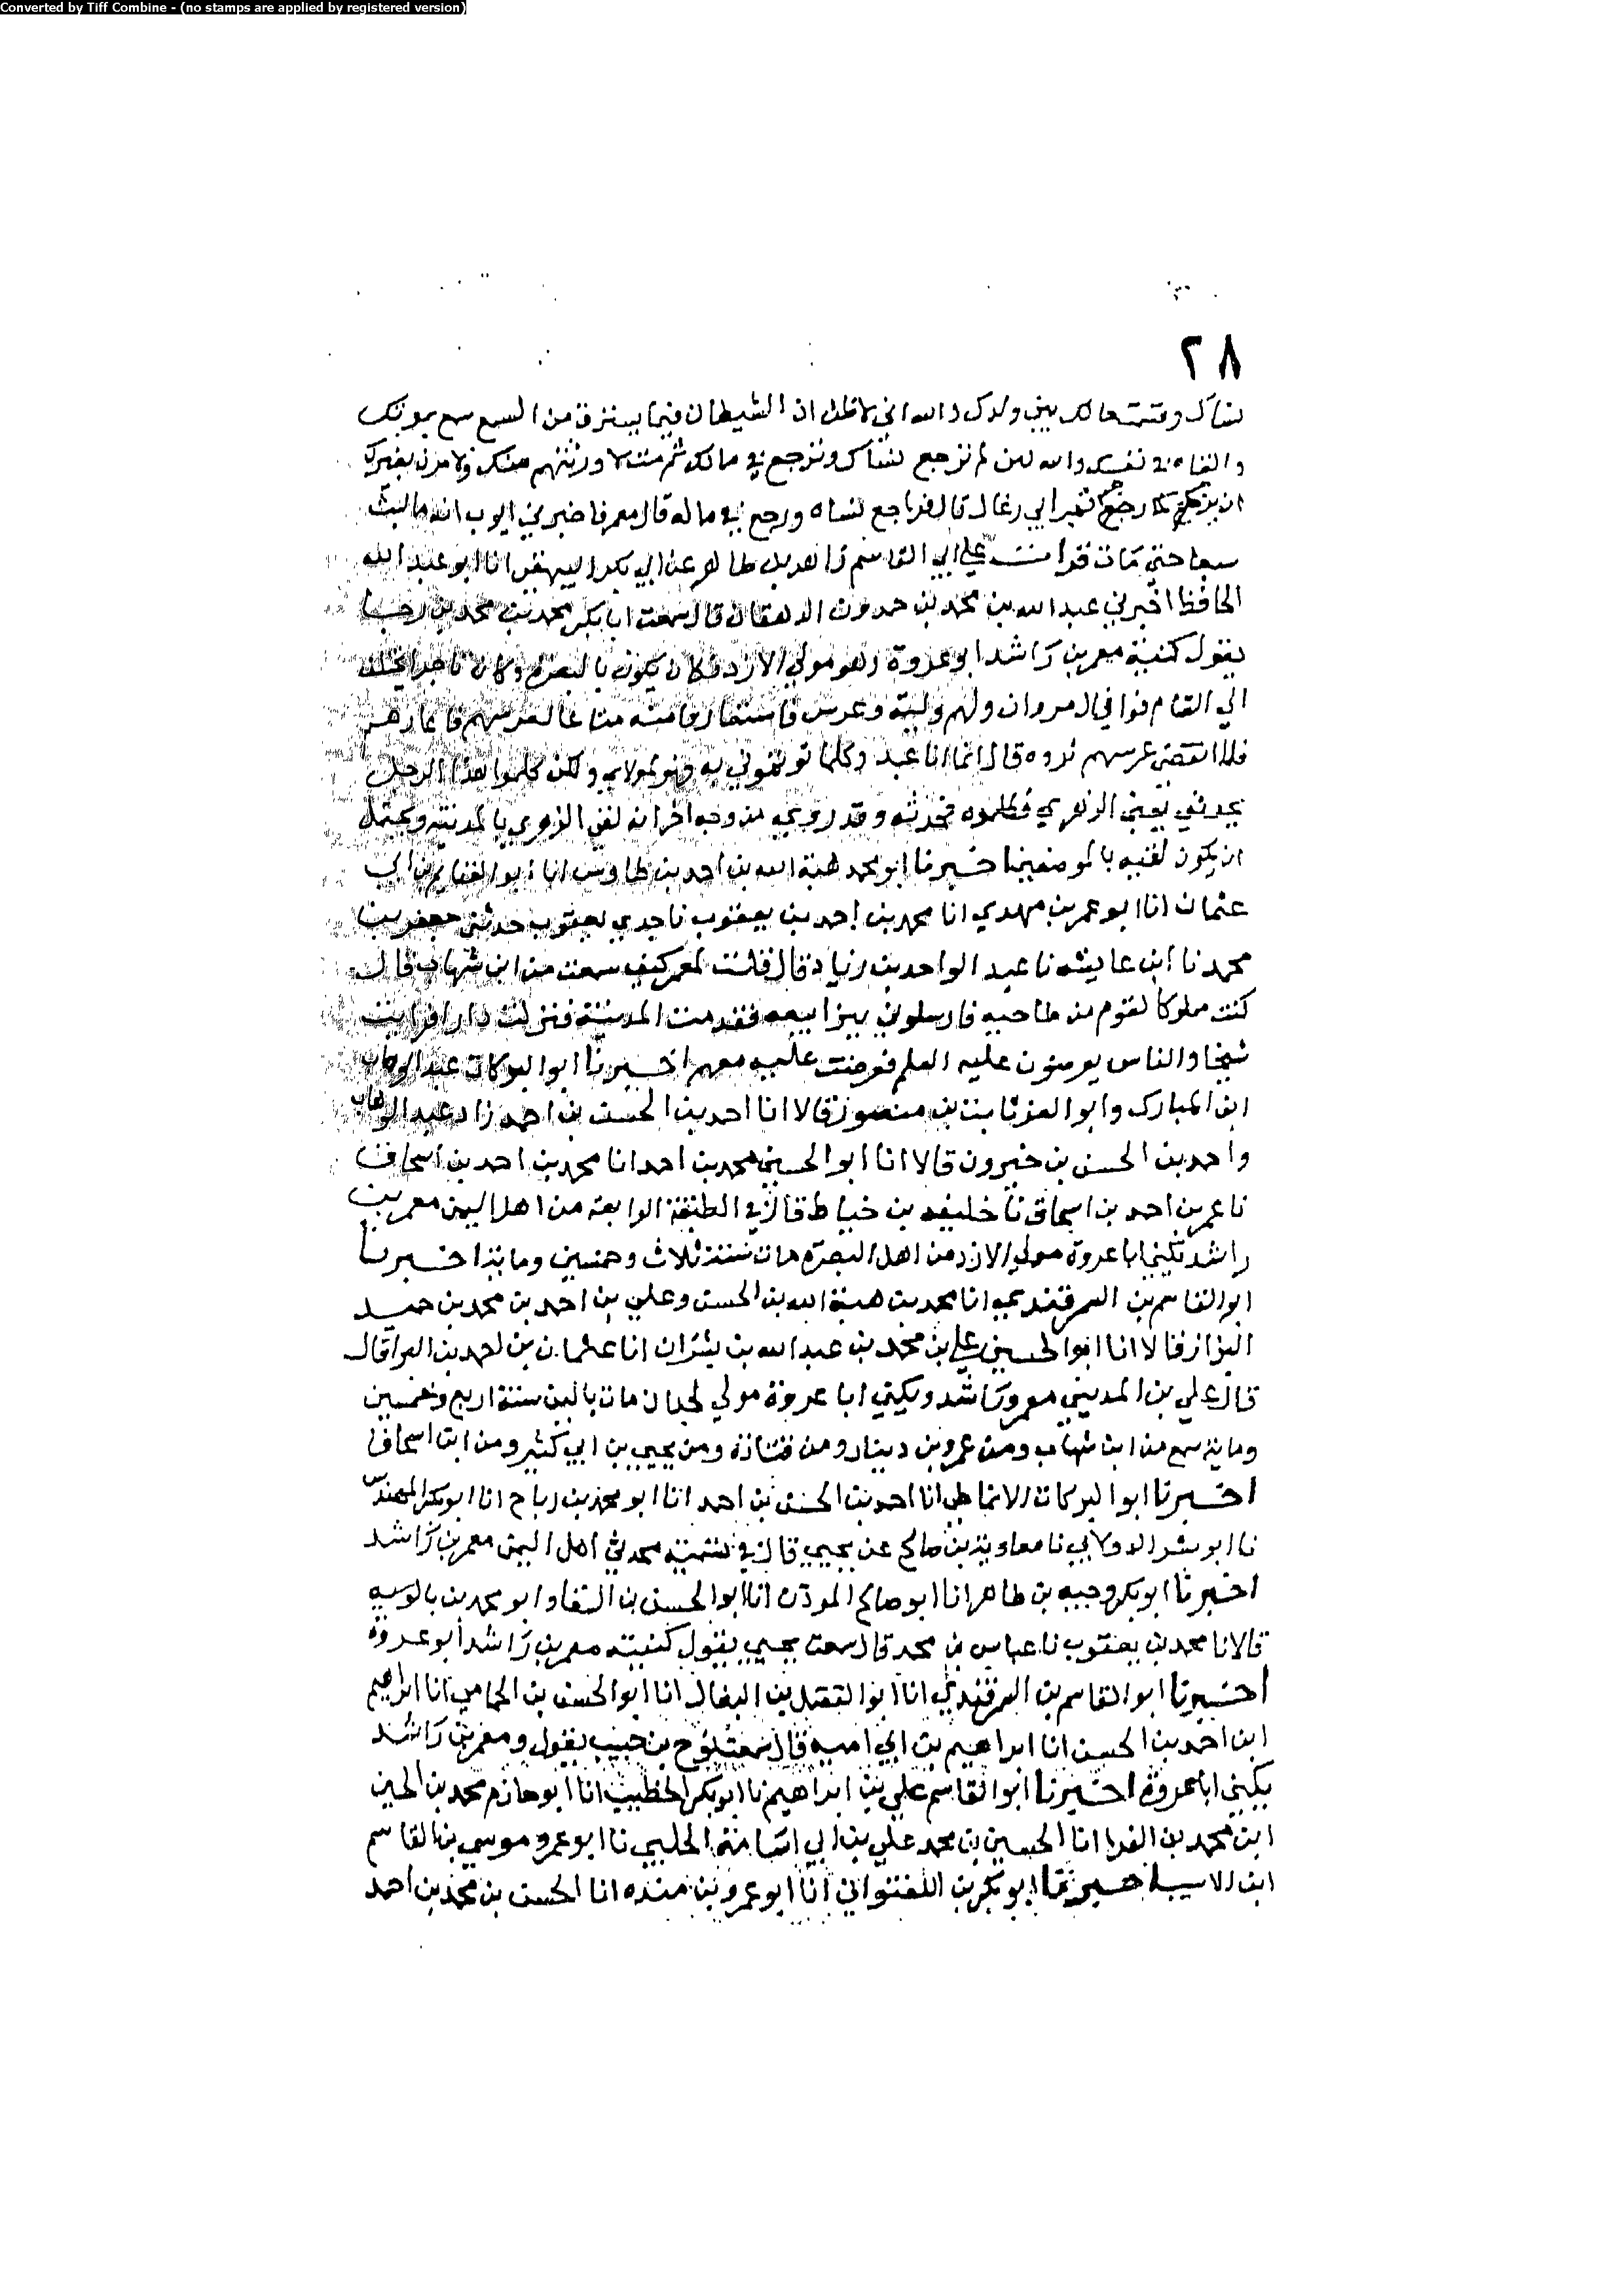 Converted by Tiff Combine - (no stamps are applied by registered version)
٢٨
نساك وقسمت مالك بين ولدك والله اني لاظن ان الشيطان فيما يسترق من السمع سمع بموتك
والقاه في نفسك والله لين لم تراجع نساك وترجع في مالك ثم مت لاورثنهن منك ولامرن بقبرك
ان يرجم كما رجم قبر ابي رغال قال فراجع نساه ورجع في ماله قال معمر فاخبرني ايوب انه ما لبث
سبعا حتي مات قرات علي ابي القاسم زاهر بن طاهر عن ابي بكر البيهقي انا ابو عبد الله
الحافظ اخبرني عبد الله بن محمد بن حمدون الدهقان قال سمعت ابا بكر محمد بن محمد بن رجا
يقول كنية معمر بن راشد ابو عروة وهو مولي الازد وكان يكون بالبصرة وكان تاجرا يختلف
الي الشام فوافي ال مروان ولهم وليمة وعرس فاستعاروا منه متاعا لعرسهم فاعارهم
فلما انقضي عرسهم ثروه قال انما انا عبد وكلما توثقوني به فهو لمولاي ولكن كلموا هذا الرجل
يحدثني يعني الزهري فكلموه فحدثه وقد روي من وجه اخر انه لقي الزهري بالمدينة ويحتمل
ان يكون لقيه بالموضعين اخبرنا ابو محمد هبة الله بن احمد بن طاوس انا ابو الغنايم بن ابي
عثمان انا ابو عمر بن مهدي انا محمد بن احمد بن يعقوب نا جدي يعقوب حدثني جعفر بن
محمد نا ابن عايشه نا عبد الواحد بن زياد قال قلت لمعمر كيف سمعت من ابن شهاب قال
كنت مملوكا لقوم من طاحيه فارسلوني ببز ابيعه فقدمت المدينة فنزلت دارا فرايت
شيخا والناس يعرضون عليه العلم فعرضت عليه معهم اخبرنا ابو البركات عبد الوهاب
ابن المبارك وابو العز ثابت بن منصور قالا انا احمد بن الحسن بن احمد زاد عبد الوهاب
واحمد بن الحسن بن خيرون قالا انا ابو الحسين محمد بن احمد انا محمد بن احمد بن اسحاق
نا عمر بن احمد بن اسحاق نا خليفه بن خياط قال في الطبقة الرابعة من اهل اليمن معمر بن
راشد يكني ابا عروة مولي الازد من اهل البصرة مات سنة ثلاث وخمسين وماية اخبرنا
ابو القاسم بن السمرقندي انا محمد بن هبة الله بن الحسن وعلي بن احمد بن محمد بن حميد
البزاز قالا انا ابو الحسين علي بن محمد بن عبد الله بن بشران انا عثمان بن احمد بن البرا قال
قال علي بن المديني معمر راشد ويكني ابا عروة مولي لحدان مات باليمن سنة اربع وخمسين
وماية سمع من ابن شهاب ومن عمرو بن دينار ومن قتادة ومن يحيي بن ابي كثير ومن ابن اسحاق
اخبرنا ابو البركات الانماطي انا احمد بن الحسن بن احمد انا ابو محمد بن رباح انا ابو بكر المهندس
نا ابو بشر الدولابي نا معاوية بن صالح عن يحيي قال في تسمية محدثي اهل اليمن معمر بن راشد
اخبرنا ابو بكر وجيه بن طاهر انا ابو صالح الموذن انا ابو الحسن بن السقا وابو محمد بن بالويه
قالا نا محمد بن يعقوب نا عباس بن محمد قال سمعت يحيي يقول كنيته معمر بن راشد ابو عروة
اخبرنا ابو القاسم بن السمرقندي انا ابو الفضل بن البقال انا ابو الحسن بن الحمامي انا ابراهيم
ابن احمد بن الحسن انا ابراهيم بن ابي اميه قال سمعت نوح بن حبيب يقول ومعمر بن راشد
يكني ابا عروة اخبرنا ابو القاسم علي بن ابراهيم نا ابو بكر الخطيب انا ابو حازم محمد بن الحسين
ابن محمد بن الفرا انا الحسين بن محمد علي بن ابي اسامة الحلبي نا ابو عمرو موسي بن القاسم
ابن الاسيب اخبرنا ابو بكر بن اللفتواني انا ابو عمرو بن منده انا الحسن بن محمد بن احمد